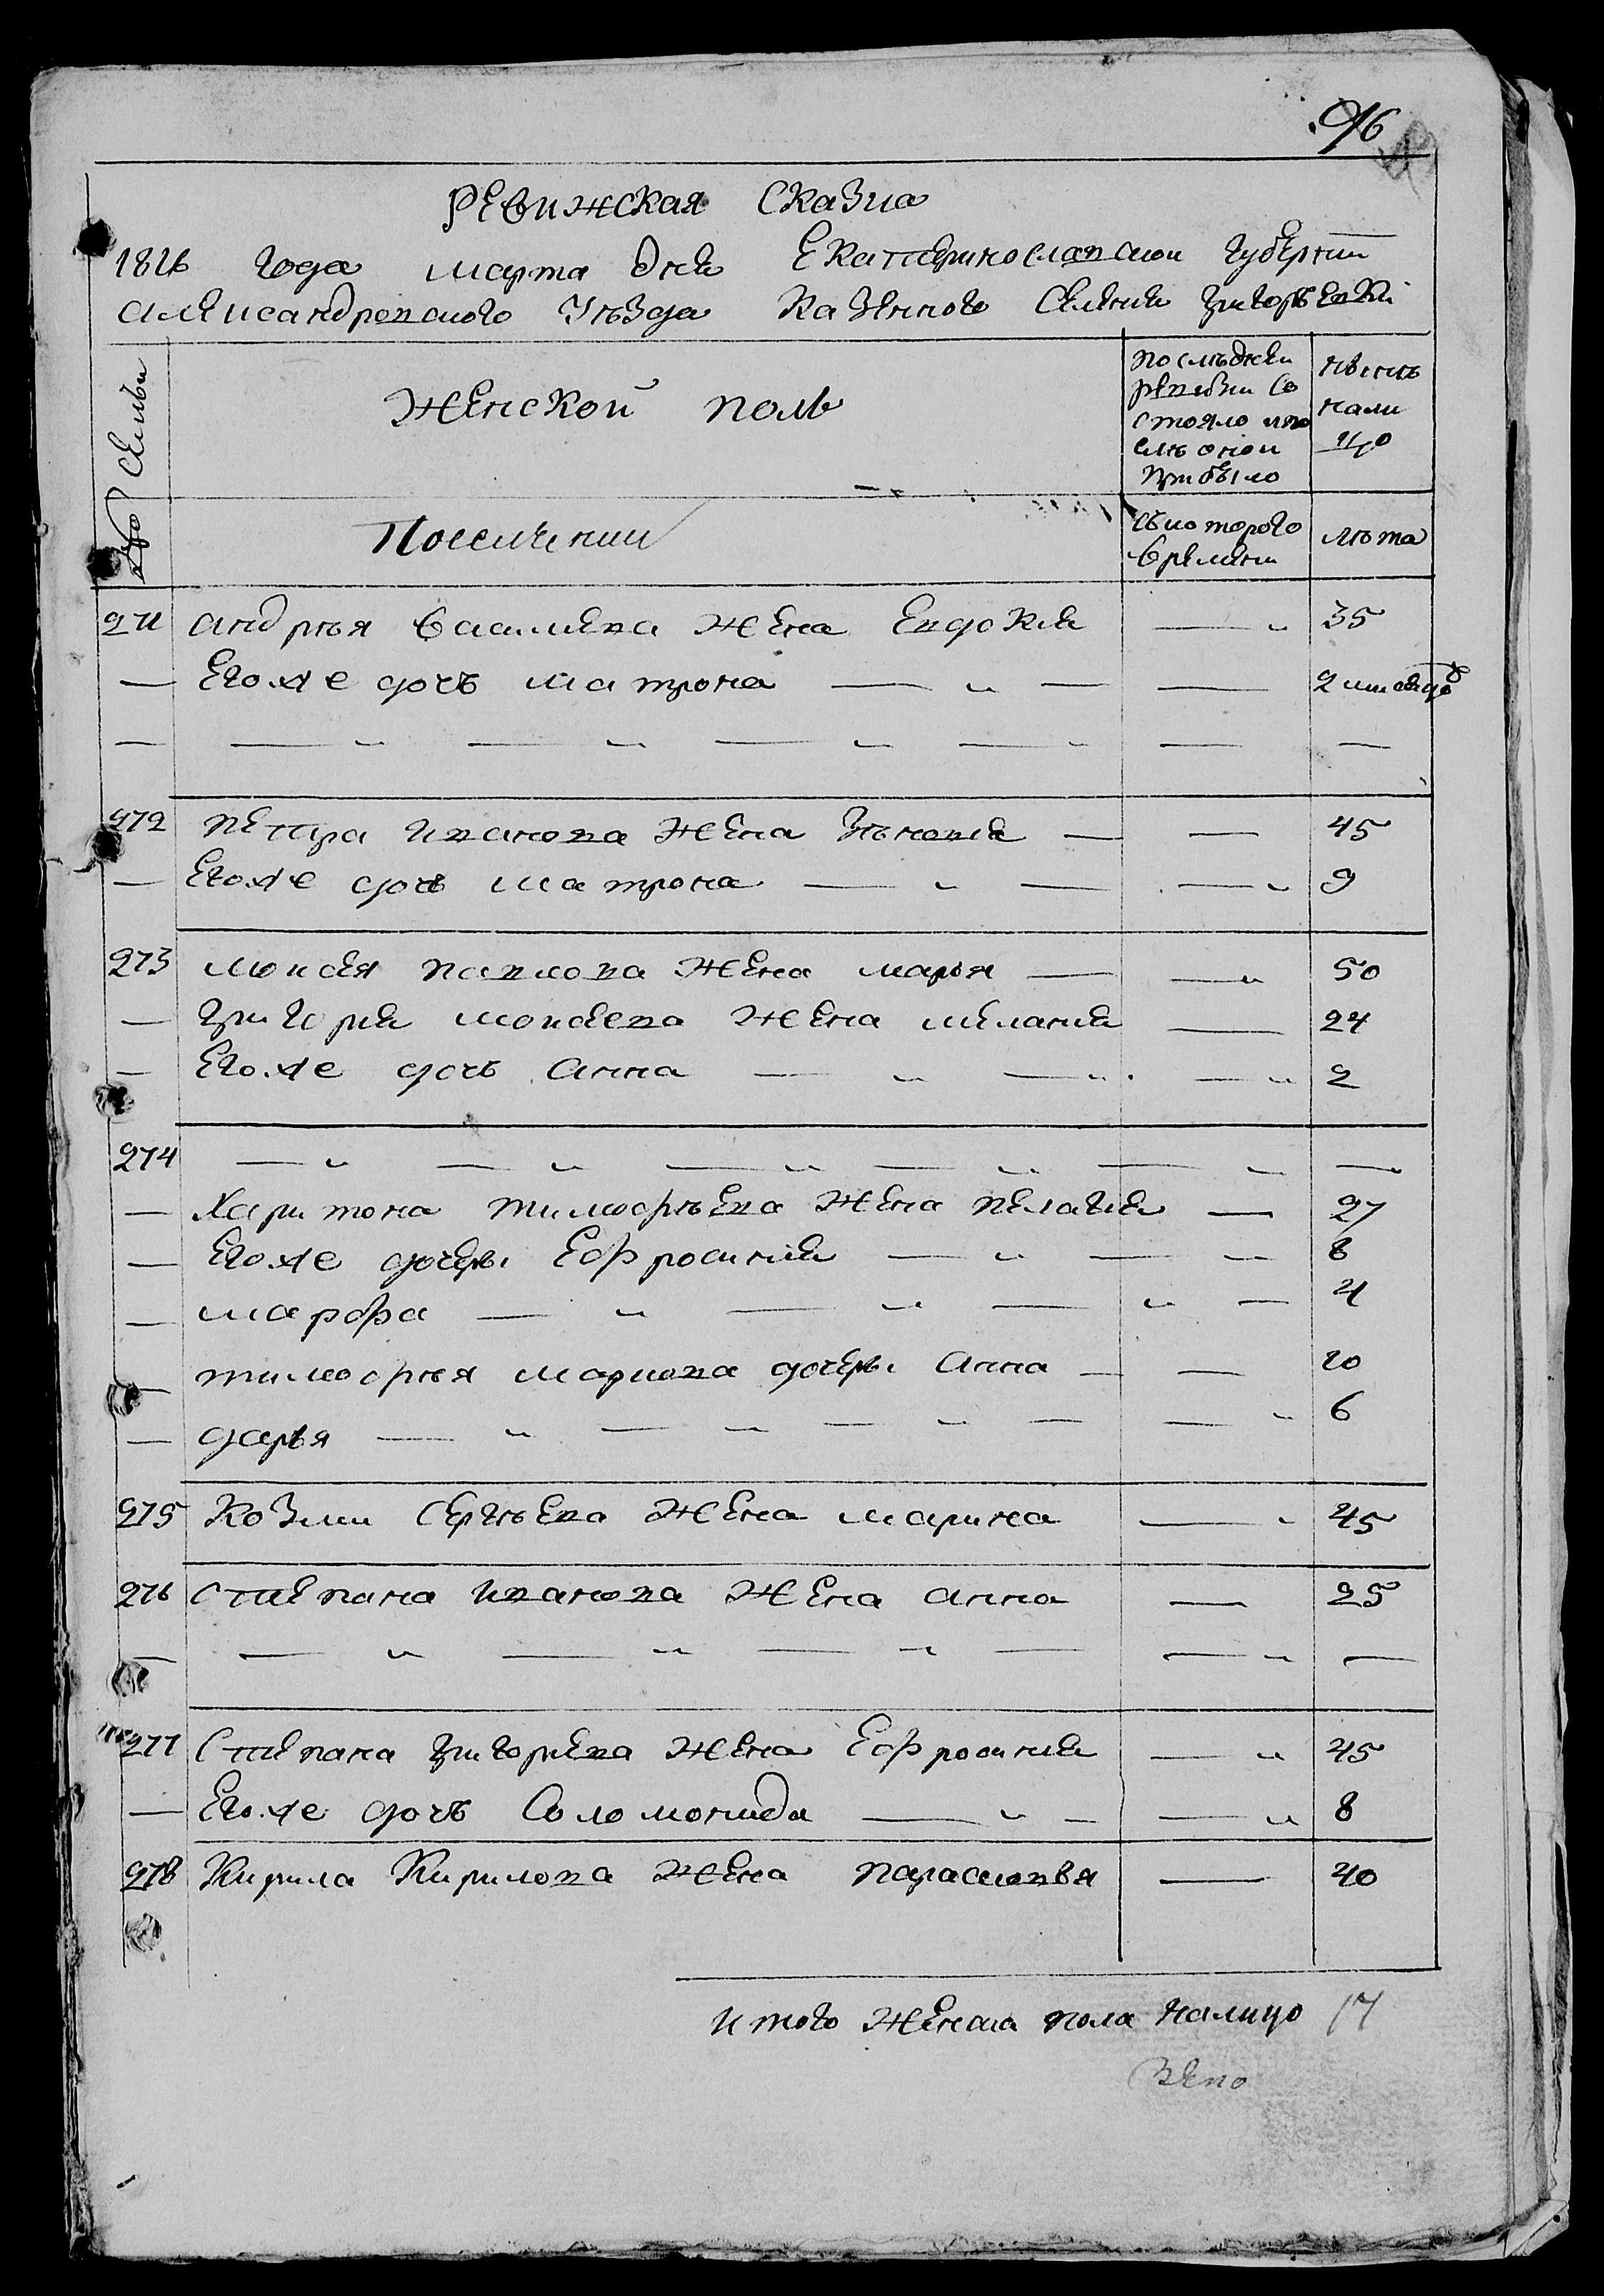 96
Ревижская Сказка
1816 года марта дня Екатеринославской губернии
Александровского Уѣзда Казенного Селения Григорѣевки
Семьи
Женской полъ
последнеи
ревизи со
стояло ...
... онои
прибыло
Нынѣ
нали
цо
Поселении
съкоторого
времени
лѣта
271 андрѣя Василева жена Евдокия — 〃 35
— Егоже дочь матрона — 〃 — — 2 месяцов
— — 〃 — 〃 — 〃 — 〃 — —
272 Петра Иванова жена Зѣновия — — 45
— Егоже дочь матрона — 〃 — — 〃 9
273 моисея павлова жена марья — — 〃 50
— григория моисева жена мелания — 24
— Егоже дочь анна — 〃 — 〃 — 〃 2
274 — 〃 — 〃 — 〃 — 〃 — 〃 —
— Харитона тимофѣева жена пелагия — 27
— Егоже дочери Ефросиния — 〃 — 〃 8
— марфа — 〃 — 〃 — 〃 — 4
— тимофѣя маркова дочери анна — — 10
— дарья — 〃 — 〃 — 〃 — — 〃 6
275 Козми Сергѣева жена марина — 〃 45
276 Степана Иванова жена анна — 25
— — 〃 — 〃 — 〃 — — 〃 —
277 Степана григориева жена Ефросиния — 〃 45
— Егоже дочь Соломонида — 〃 — — 〃 8
278 Кирила Кирилова жена парасковья — 40
Итого женска пола налицо 17